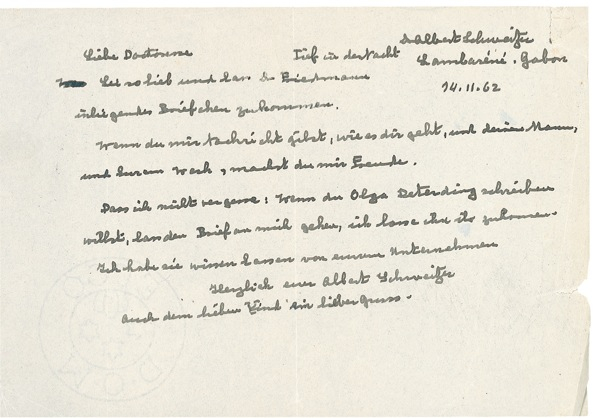 Dr Albert Schweitzer
Liebe Doctoresse Tief in der Nacht Lambaréné. Gabon
Sei so lieb und lass Dr Friedmann 14.11.62
inliegendes Briefchen zukommen.
Wenn du mir Nachricht gibst, wie es dir geht, und deinem Mann,
und Eurem Werk, machst du mir Freude.
Dass ich nicht vergesse: Wenn du Olga Deterding schreiben
willst, lass den Brief an mich gehen, ich lasse ihr ihn zukommen.
Ich habe sie wissen lassen von eurem Unternehmen
Herzlich euer Albert Schweitzer
Auch dem lieben Kind ein lieber Gruss.